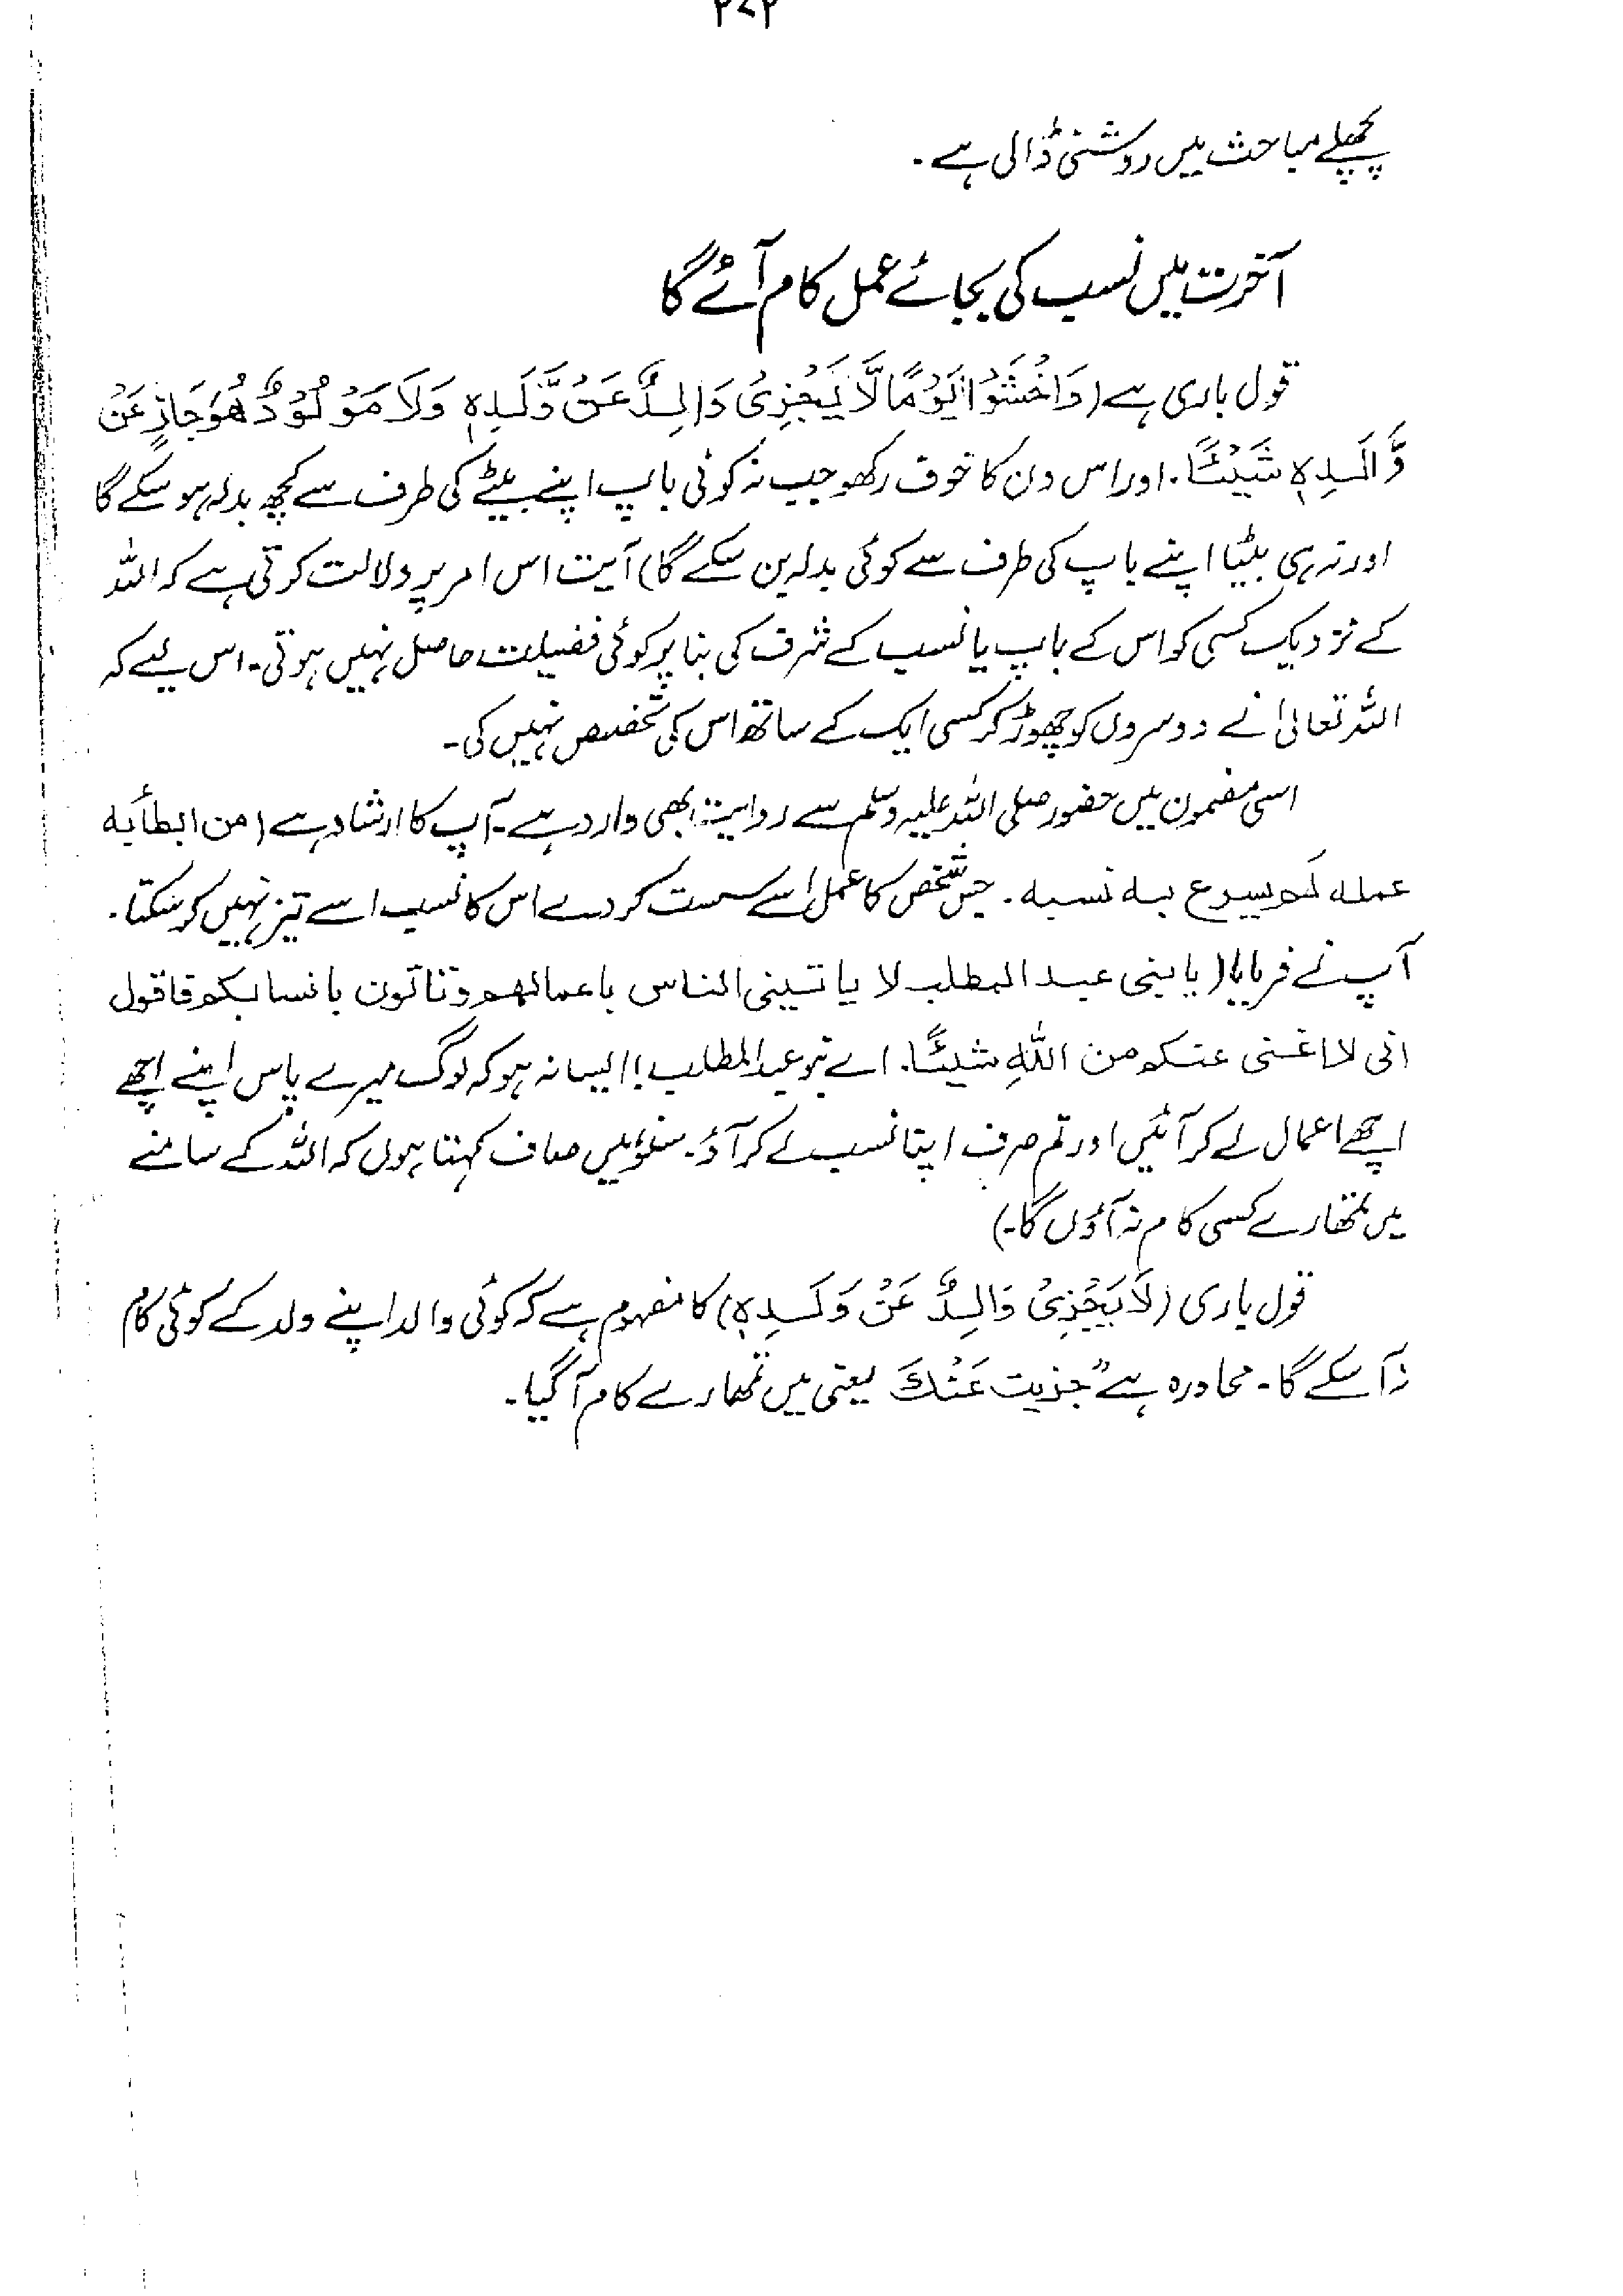 ۲۷۲
پچھلے مباحث میں روشنی ڈالی ہے۔
آخرت میں نسب کی بجائے عمل کام آئے گا
قول باری ہے (وَاخْشَوْا يَوْمًا لَّا يَجْزِىْ وَالِدٌ عَنْ وَّلَدِهٖ وَلَا مَوْلُوْدٌ هُوَ جَازٍ عَنْ
وَّالِدِهٖ شَيْئًا۔ اور اس دن کا خوف رکھو جب نہ کوئی باپ اپنے بیٹے کی طرف سے کچھ بدلہ ہو سکے گا
اور نہ ہی بیٹا اپنے باپ کی طرف سے کوئی بدلہ بن سکے گا) آیت اس امر پر دلالت کرتی ہے کہ اللہ
کے نزدیک کسی کو اس کے باپ یا نسب کے شرف کی بنا پر کوئی فضیلت حاصل نہیں ہوتی۔ اس لیے کہ
اللہ تعالیٰ نے دوسروں کو چھوڑ کر کسی ایک کے ساتھ اس کی تخصیص نہیں کی۔
اسی مضمون میں حضور صلی اللہ علیہ وسلم سے روایت بھی وارد ہے۔ آپ کا ارشاد ہے (من ابطأ به
عمله لم يسرع به نسبه۔ جس شخص کا عمل اسے سست کر دے اس کا نسب اسے تیز نہیں کر سکتا۔
آپ نے فرمایا (یا بنی عبد المطلب لا یاتینی الناس باعمالهم وتاتون بانسابکم فاقول
انی لا اغنی عنکم من اللهِ شیئًا۔ اے بنو عبد المطلب! ایسا نہ ہو کہ لوگ میرے پاس اپنے اچھے
اچھے اعمال لے کر آئیں اور تم صرف اپنا نسب لے کر آؤ۔ سنو، میں صاف کہتا ہوں کہ اللہ کے سامنے
میں تمھارے کسی کام نہ آؤں گا۔)
قول باری (لَا يَجْزِىْ وَالِدٌ عَنْ وَلَدِهٖ) کا مفہوم ہے کہ کوئی والد اپنے ولد کے کوئی کام
نہ آ سکے گا۔ محاورہ ہے "جزیت عَنْكَ یعنی میں تمھارے کام آ گیا۔